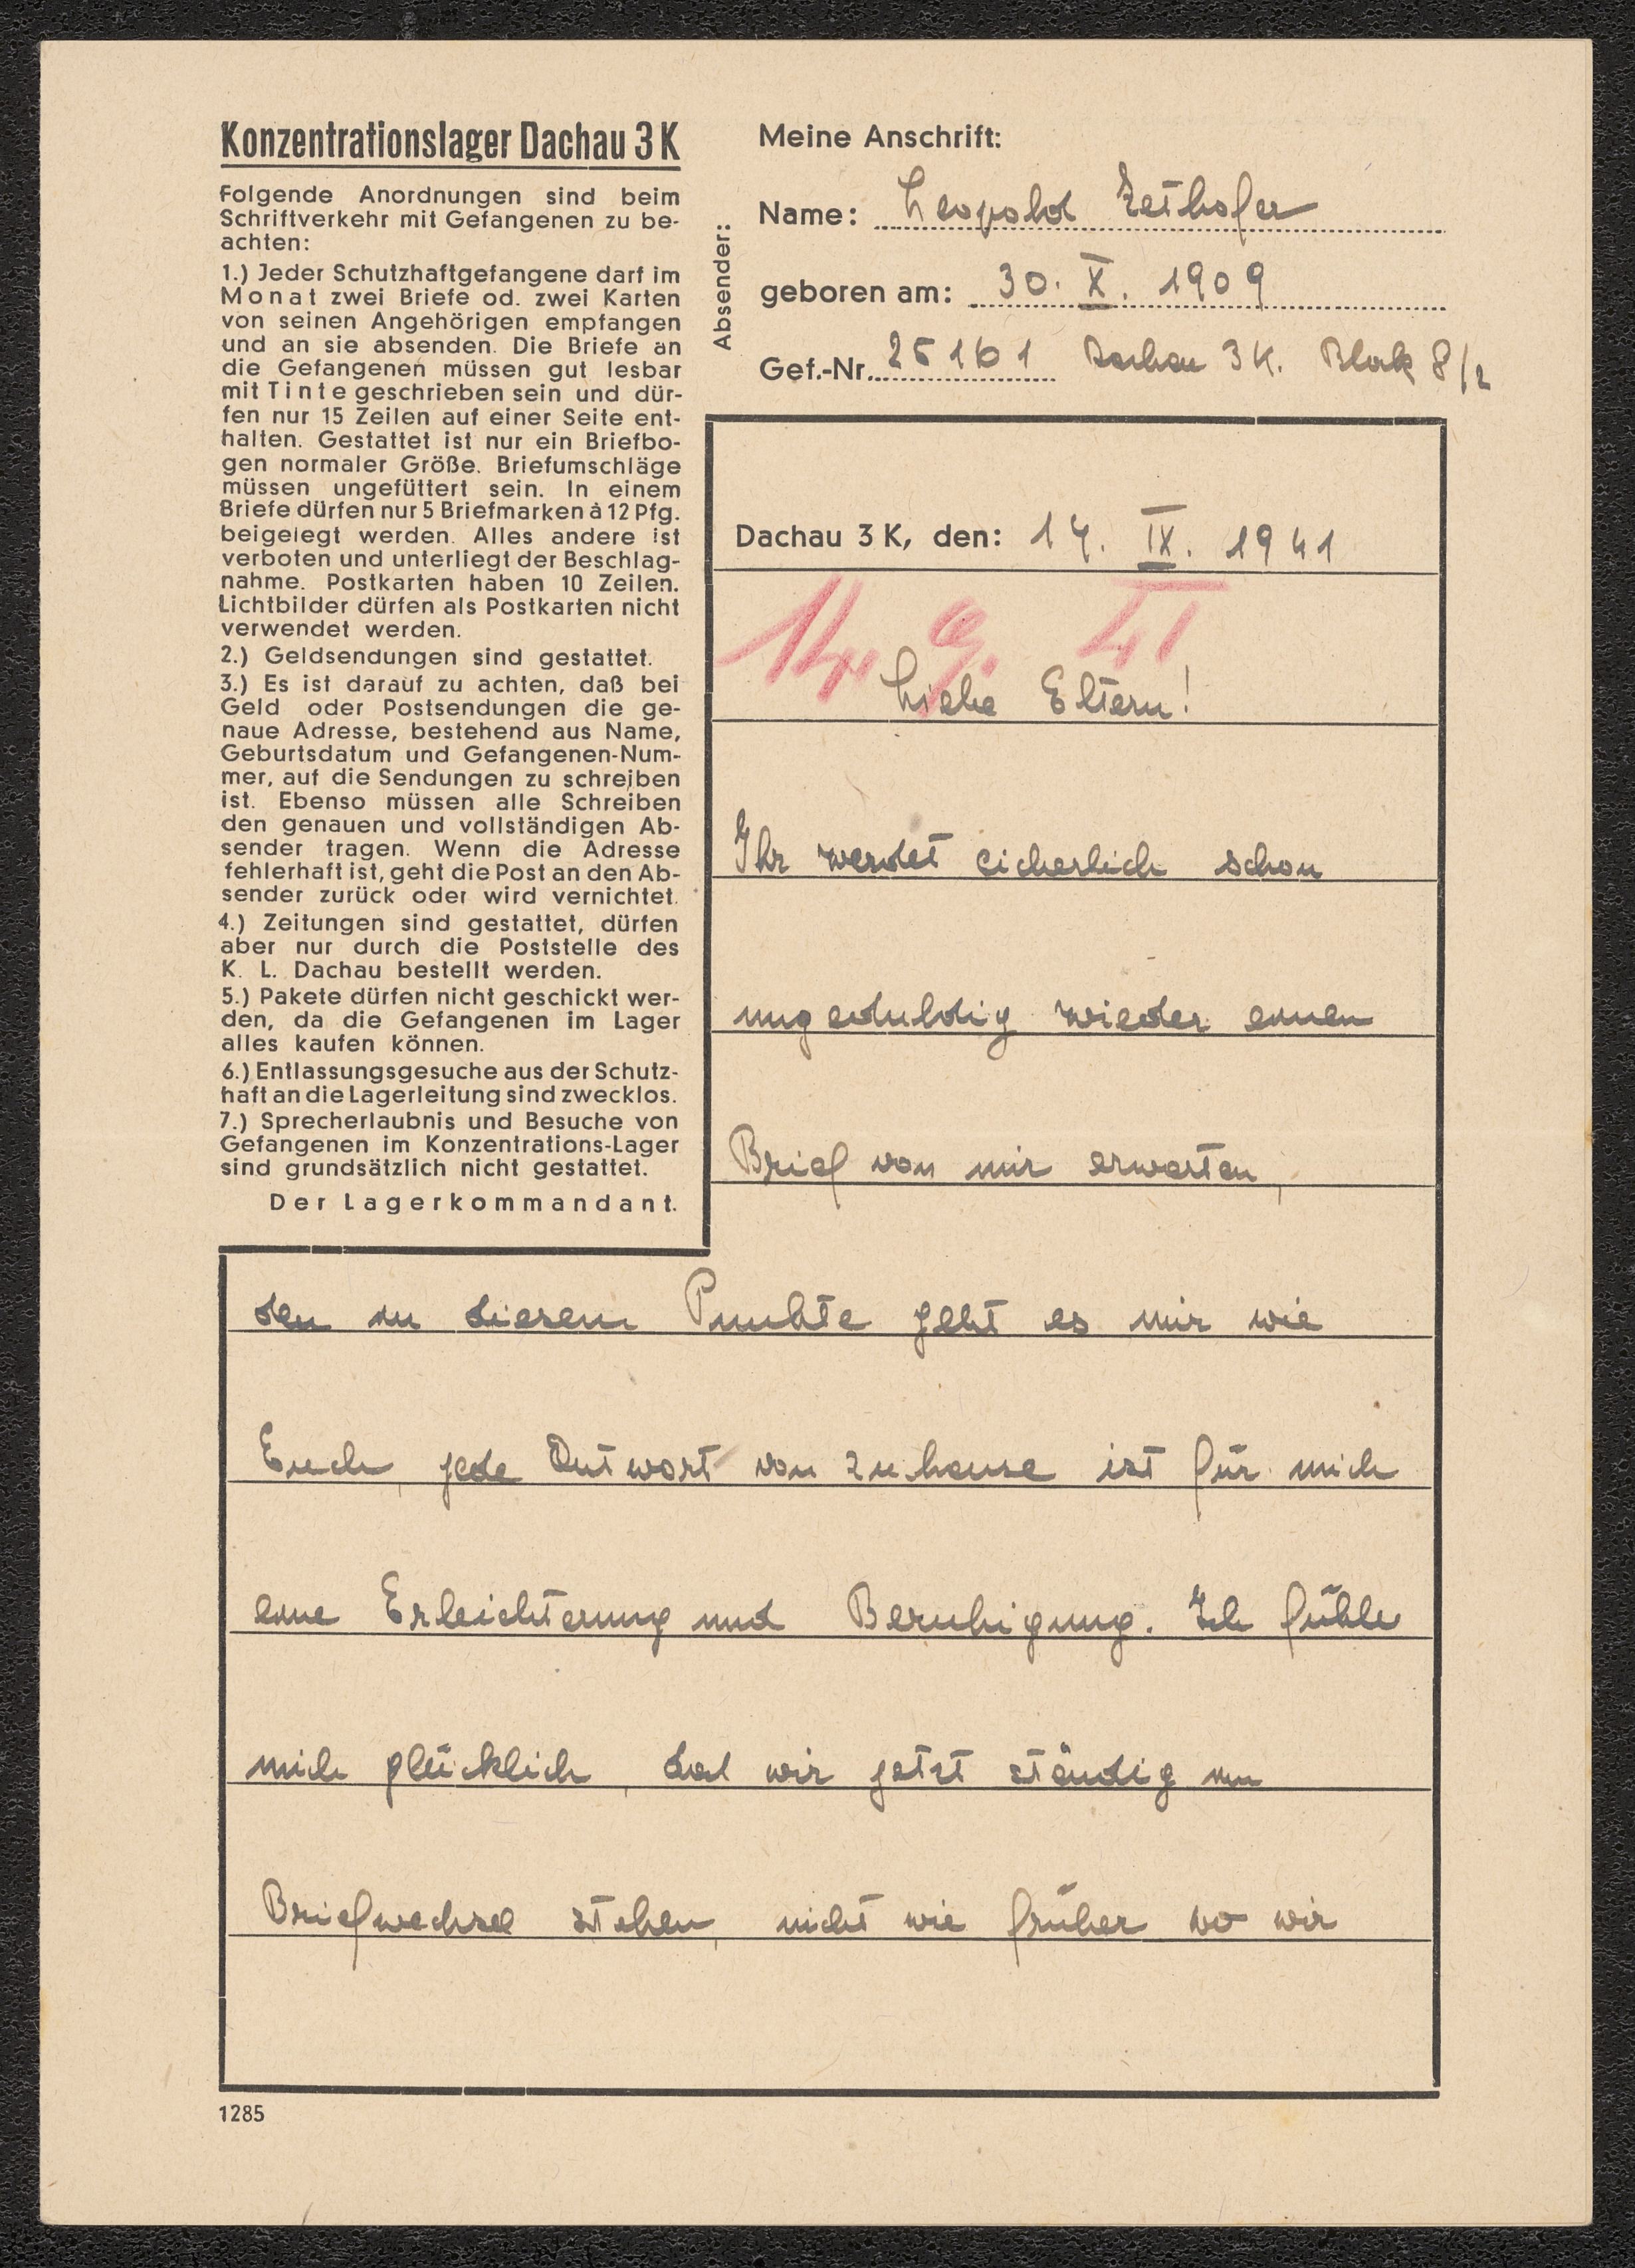 Konzentrationslager Dachau 3 K
Folgende Anordnungen sind beim
Schriftverkehr mit Gefangenen zu be-
achten:
1.) Jeder Schutzhaftgefangene darf im
Monat zwei Briefe od. zwei Karten
von seinen Angehörigen empfangen
und an sie absenden. Die Briefe an
die Gefangenen müssen gut lesbar
mit Tinte geschrieben sein und dür-
fen nur 15 Zeilen auf einer Seite ent-
halten. Gestattet ist nur ein Briefbo-
gen normaler Größe. Briefumschläge
müssen ungefüttert sein. In einem
Briefe dürfen nur 5 Briefmarken à 12 Pfg.
beigelegt werden. Alles andere ist
verboten und unterliegt der Beschlag-
nahme. Postkarten haben 10 Zeilen.
Lichtbilder dürfen als Postkarten nicht
verwendet werden.
2.) Geldsendungen sind gestattet.
3.) Es ist darauf zu achten, daß bei
Geld oder Postsendungen die ge-
naue Adresse, bestehend aus Name,
Geburtsdatum und Gefangenen-Num-
mer, auf die Sendungen zu schreiben
ist. Ebenso müssen alle Schreiben
den genauen und vollständigen Ab-
sender tragen. Wenn die Adresse
fehlerhaft ist, geht die Post an den Ab-
sender zurück oder wird vernichtet.
4.) Zeitungen sind gestattet, dürfen
aber nur durch die Poststelle des
K. L. Dachau bestellt werden.
5.) Pakete dürfen nicht geschickt wer-
den, da die Gefangenen im Lager
alles kaufen können.
6.) Entlassungsgesuche aus der Schutz-
haft an die Lagerleitung sind zwecklos.
7.) Sprecherlaubnis und Besuche von
Gefangenen im Konzentrations-Lager
sind grundsätzlich nicht gestattet.
Der Lagerkommandant.
Absender:
Meine Anschrift:
Name: Leopold Zethofer
geboren am: 30. X. 1909
Gef.-Nr. 25161 Dachau 3 K. Block 8/2
Dachau 3 K, den: 14. IX. 1941
14. 9. 41
Liebe Eltern!
Ihr werdet sicherlich schon
ungeduldig wieder einen
Brief von mir erwarten,
den in diesem Punkte geht es mir wie
Euch, jede Antwort von zuhause ist für mich
eine Erleichterung und Beruhigung. Ich fühle
mich glücklich, das wir jetzt ständig im
Briefwechsel stehen, nicht wie früher wo wir
1285